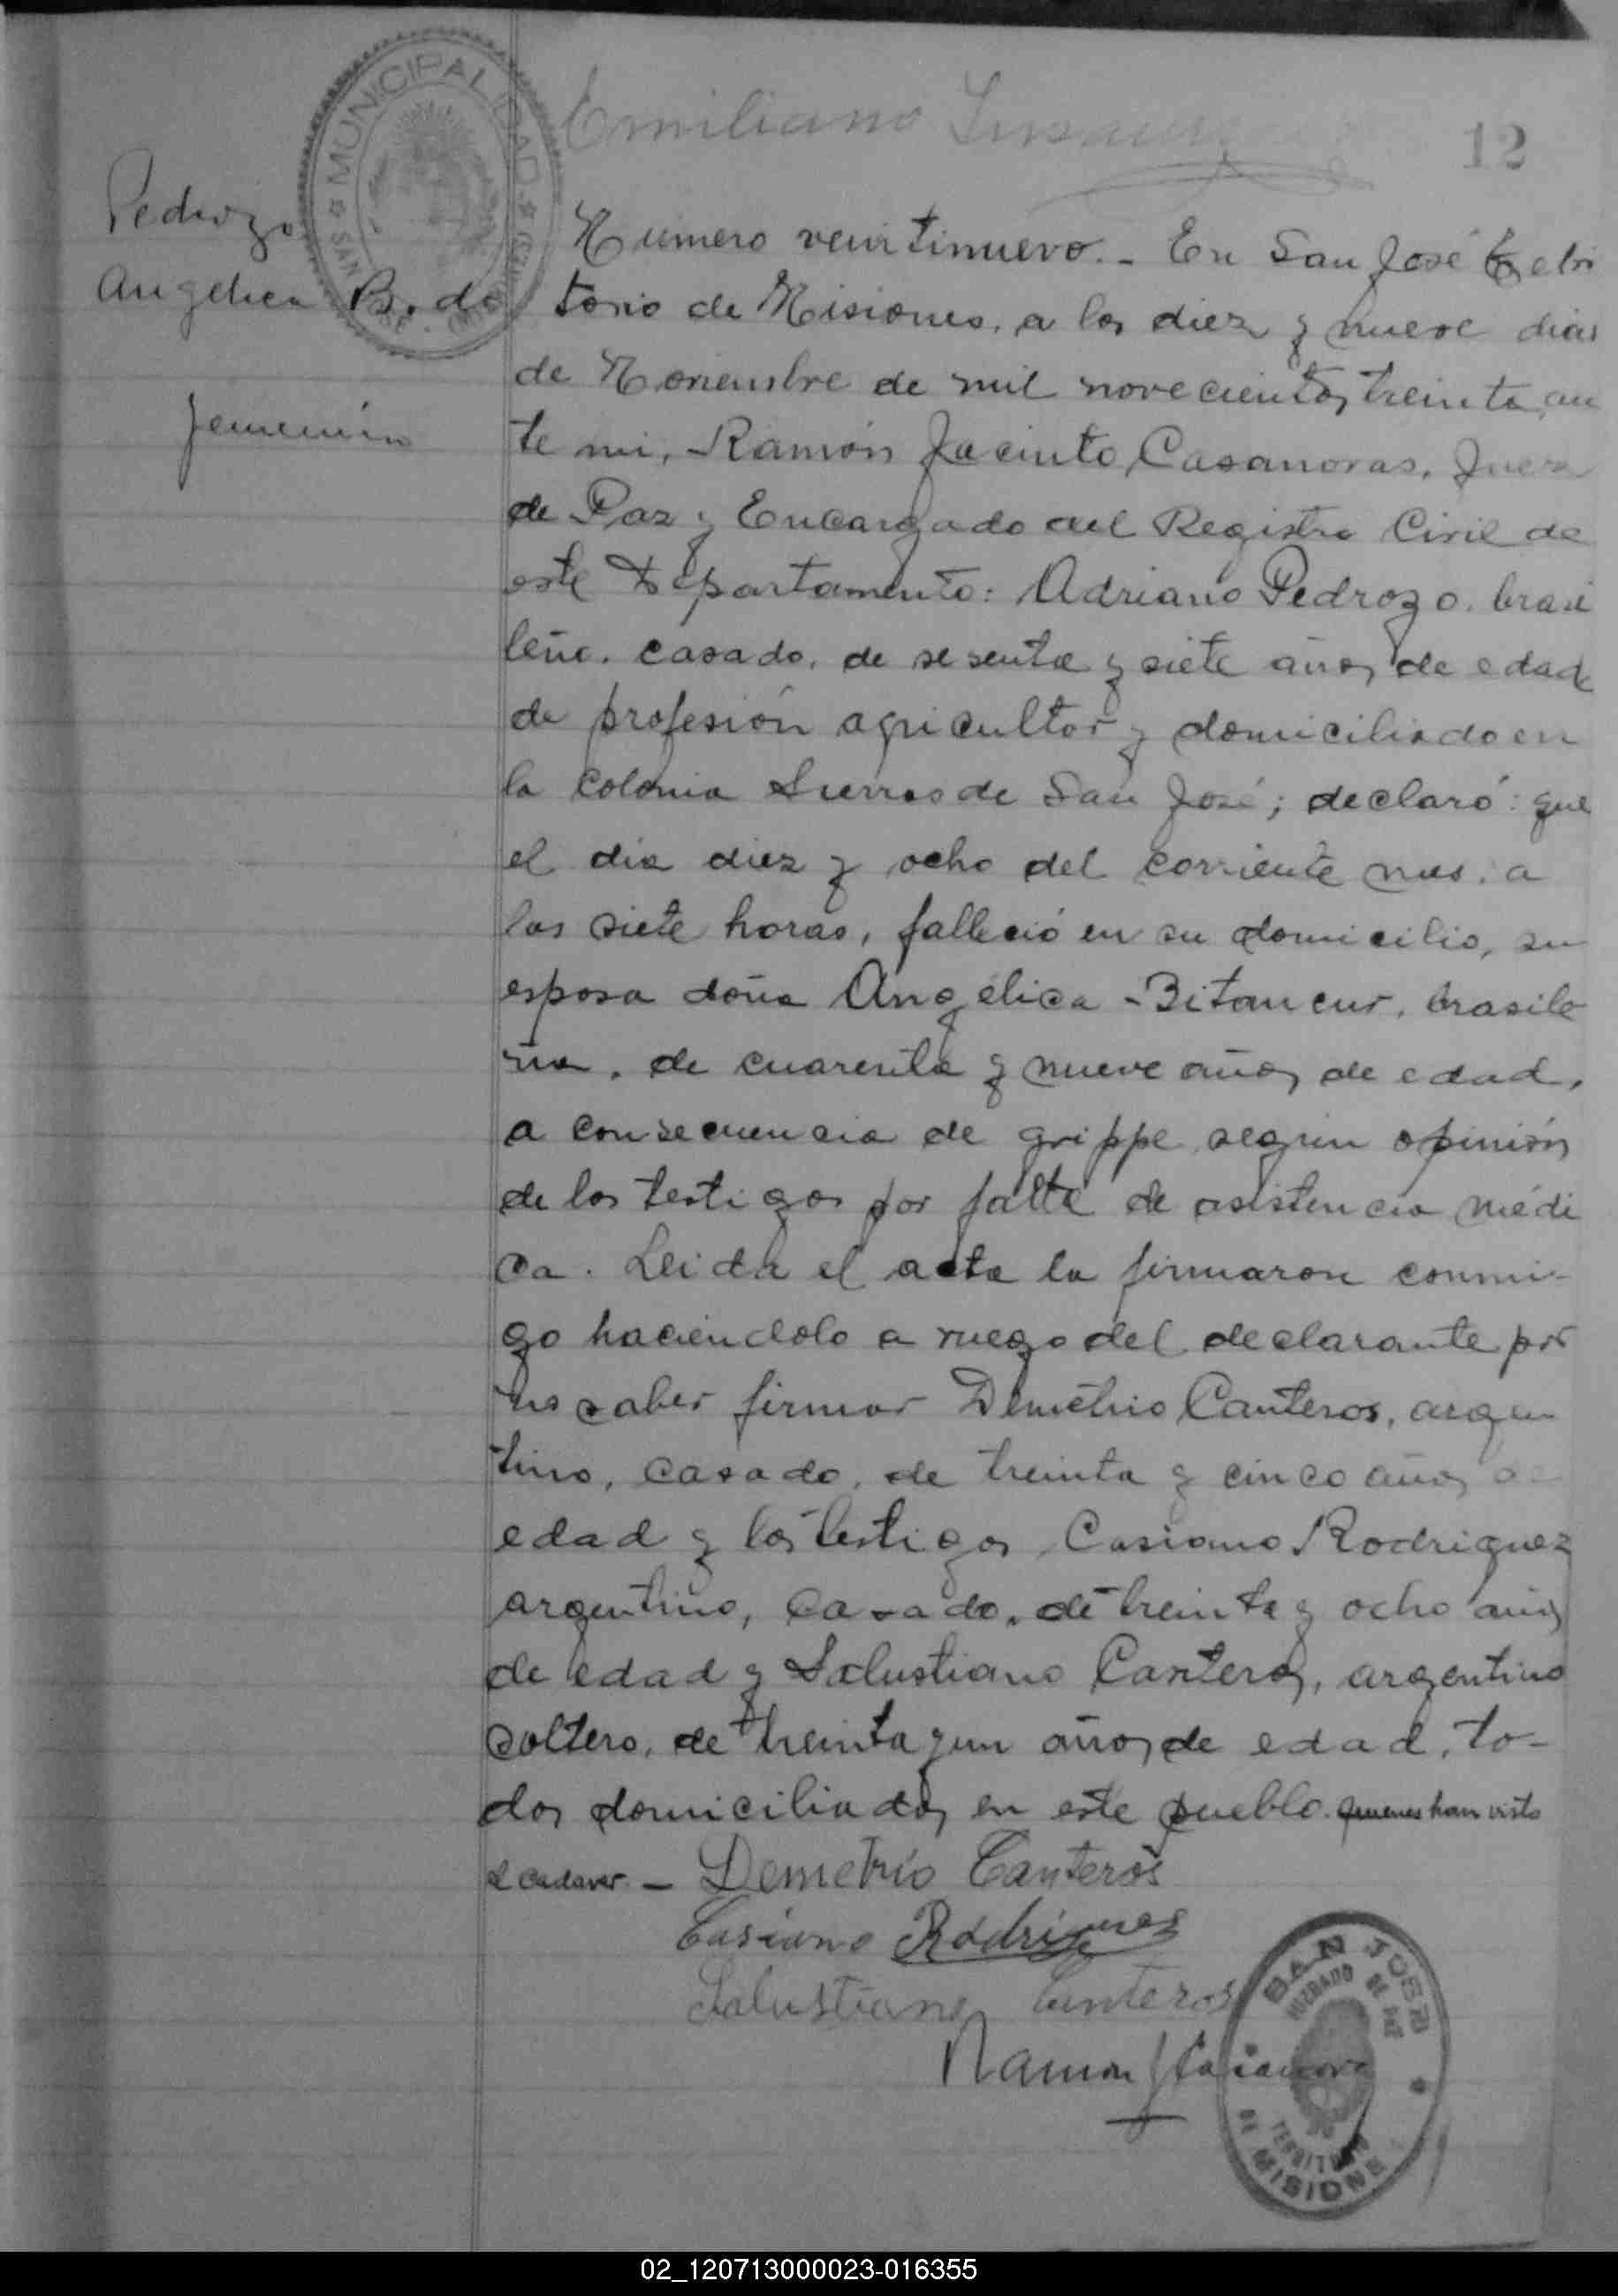 MUNICIPALIDAD
SAN JOSE
Emiliano
12
Pedrozo
Angelica B. de
femenino
Número veintinueve.- En San José Terri
torio de Misiones, a los diez y nueve dias
de Noviembre de mil novecientos treinta, an
te mi, Ramón Jacinto Casanovas, Juez
de Paz y Encargado del Registro Civil de
este Departamento: Adriano Pedrozo, brasi
leño, casado, de sesenta y siete años de edad
de profesión agricultor y domiciliado en
la colonia Sierras de San José; declaró: que
el día diez y ocho del corriente mes, a
las siete horas, falleció en su domicilio, su
esposa doña Angélica Bitancur, brasile
ña, de cuarenta y nueve años de edad,
a consecuencia de grippe según opinión
de los testigos por falta de asistencia médi
ca. Leida el acta la firmaron conmi-
go haciendolo a ruego del declarante por
no saber firmar Demetrio Canteros, argen
tino, casado, de treinta y cinco años de
edad y los testigos Casiano Rodriguez
argentino, casado, de treinta y ocho años
de edad y Salustiano Canteros, argentino
soltero, de treinta y un años de edad, to-
dos domiciliados en este pueblo. quienes han visto
el cadaver.- Demetrio Canteros
Casiano Rodriguez
Salustiano Canteros
Ramon J Casanova
SAN JOSE
JUZGADO DE PAZ
TERRITORIO
DE MISIONES
02_120713000023-016355